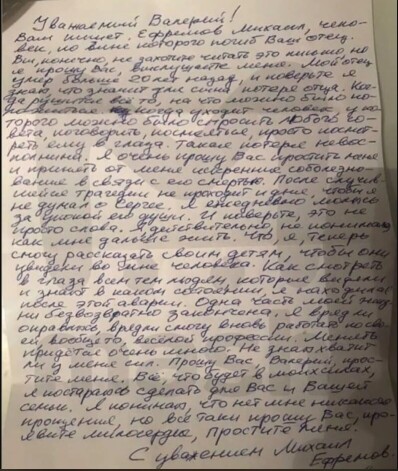 Уважаемый Валерий!
Вам пишет Ефремов Михаил, чело-
век, по вине которого погиб Ваш отец.
Вы, конечно, не захотите читать это письмо, но
я прошу Вас, выслушайте меня. Мой отец
умер больше 20 лет назад, и поверьте я
знаю, что значит для сына потеря отца. Ко-
гда рушится всё то, на что можно было по-
когда уходит человек у ко-
торого можно было спросить любого со-
вета, поговорить, просто посмот-
реть ему в глаза. Такая потеря невос-
полнима. Я очень прошу Вас простить меня
и принять от меня искренние соболезно-
вание в связи с его смертью. После случив-
шейся трагедии не проходит и дня, чтобы я
не думал о Сергее. Я ежедневно молюсь
за упокой его души. И поверьте, это не
просто слова. Я действительно, не понимаю
как мне дальше жить. Что, я, теперь
смогу рассказать своим детям, чтобы они
увидели во мне человека. Как смотреть
в глаза всем тем людям, которые видели
и знают в каком состоянии я находился
после этой аварии. Одна часть моей жиз-
ни безвозвратно закончена. Я вряд ли
оправлюсь, вряд ли смогу вновь работать по сво-
ей, вообще то, весёлой профессии. Менять
придётся очень много. Не знаю, хватит
ли у меня сил. Прошу Вас, Валерий, прос-
тите меня. Всё, что будет в моих силах,
я постараюсь сделать для Вас и Вашей
семьи. Я понимаю, что нет мне никакого
прощения, но всё таки прошу Вас, про-
явите милосердие, простите меня!
С уважением Михаил
Ефремов.